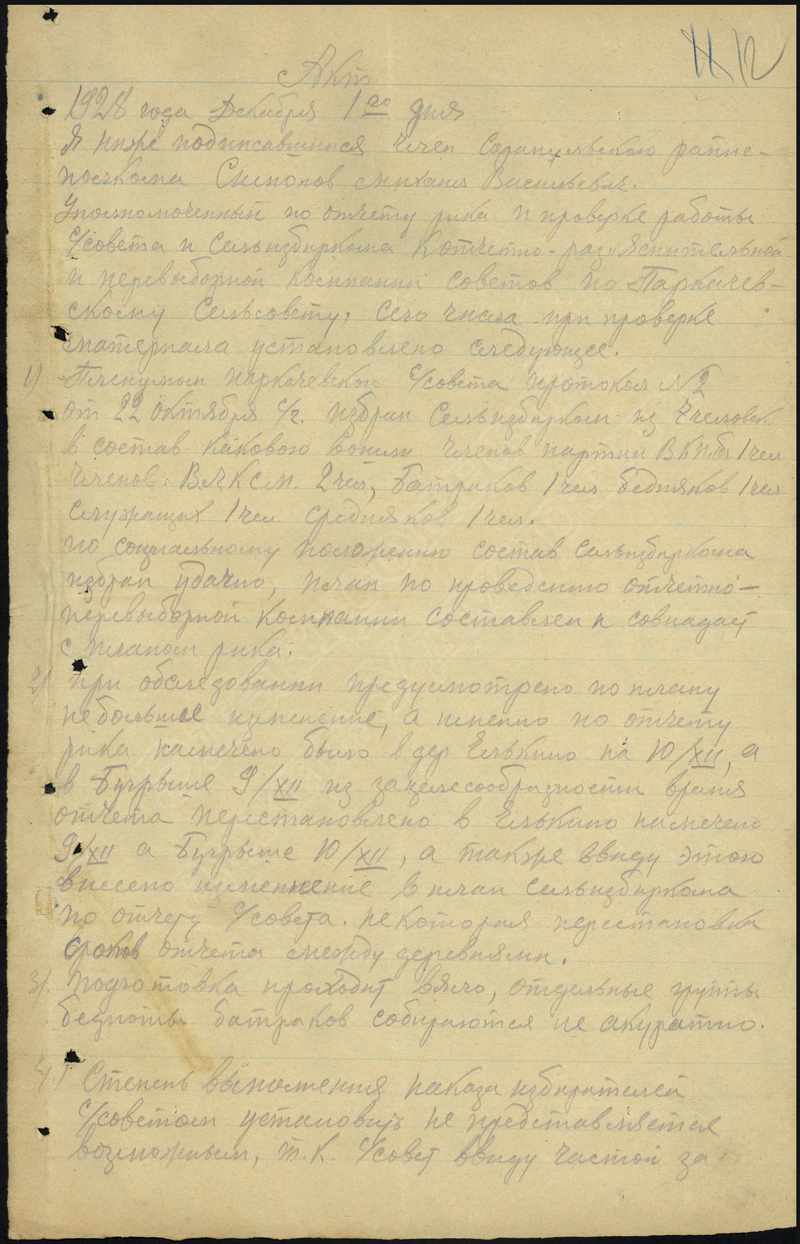 11 12
Акт
1928 года Декабря 1го дня
Я ниже подписавшийся член Сарапульского райис-
полкома Симонов Михаил Васильевич.
Уполномоченный по отчету рика и проверке работы
с/совета и Сельизбиркома к отчетно-раз'яснительной
и перевыборной компании советов по Паркачев-
скому Сельсовету, сего числа при проверке
материала установлено следующее.
1) Пленумом Паркачевского с/совета протокол №2
от 22 октября с/г. избран Сельизбирком из 7 человек
в состав какового вошли членов партии ВКПб 1 чел
членов ВЛКСМ. 2 чел, Батраков 1 чел бедняков 1 чел
служащих 1 чел средняков 1 чел.
по социальному положению состав сельизбиркома
избран удачно, план по проведению отчетно-
перевыборной компании составлен и совпадает
с планом рика.
2) При обследовании предусмотрено по плану
небольшое изменение, а именно по отчету
рика намечено было в дер Елькино на 10/XII, а
в Бугрыше 9/XII из за целесообразности время
отчета перестановлено в Елькино намечено
9/XII а Бугрыше 10/XII, а также ввиду этого
внесено изменнение в план сельизбиркома
по отчету с/совета. некоторая перестановка
сроков отчета между деревнями.
3) Подготовка проходит вяло, отдельные группы
бедноты батраков собираются не акуратно.
4) Степень выполнения наказа избирателей
с/советом установить не представляется
возможным, т.к. с/совет ввиду частой за